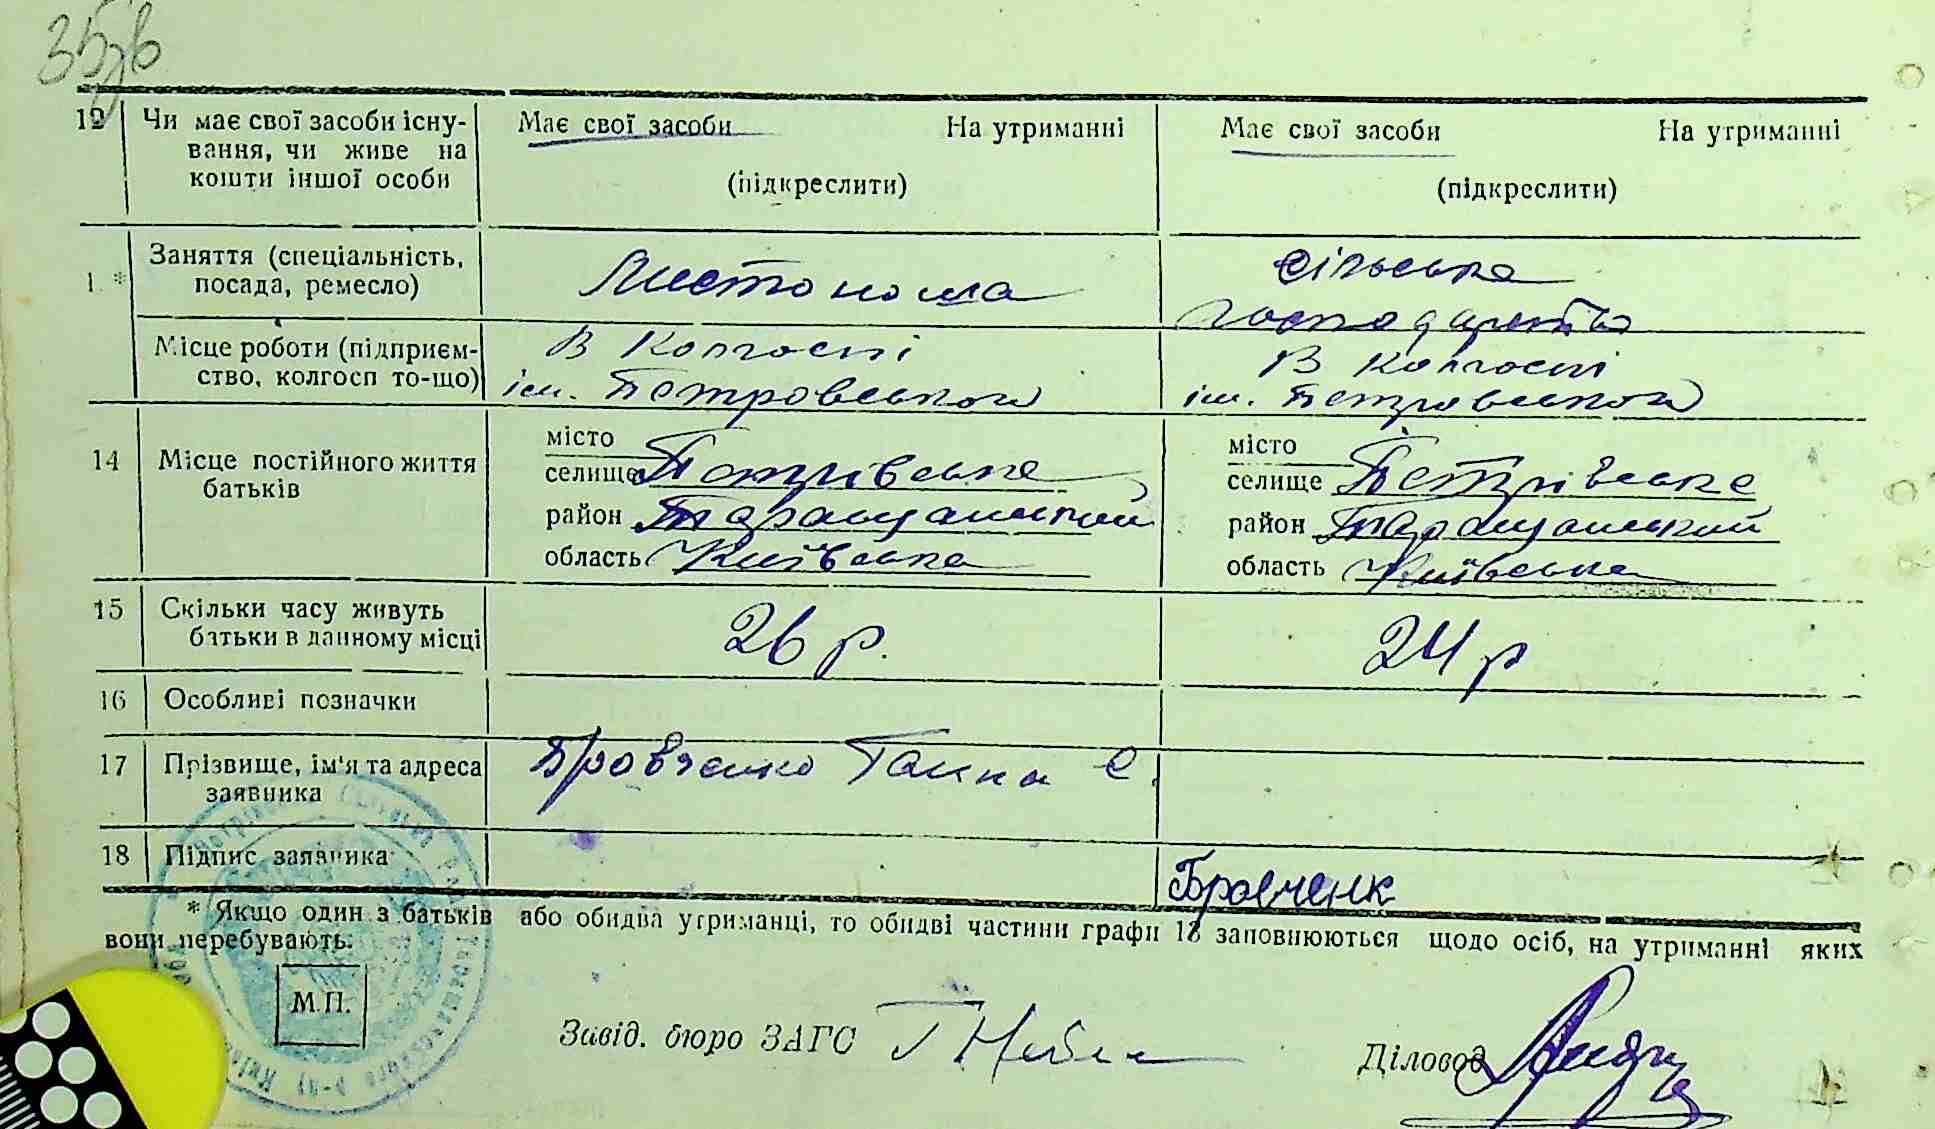 35зв
12 Чи має свої засоби існу- Має свої засоби На утриманні Має свої засоби На утриманні
вання, чи живе на
кошти іншої особи (підкреслити) (підкреслити)
1 * Заняття (спеціальність, Листоноша сільська
посада, ремесло) господарство
Місце роботи (підприєм- В Колгоспі В Колгоспі
ство, колгосп то-що) ім. Петровського ім. Петровського
14 Місце постійного життя місто місто
батьків селище Петрівське селище Петрівське
район Таращанський район Таращанський
область Київська область Київська
15 Скільки часу живуть 26 р. 24 р
батьки в данному місці
16 Особливі позначки
17 Прізвище, ім'я та адреса Бровченко Ганна Є.
заявника
18 Підпис заявника Бровченк
* Якщо один з батьків або обидва утриманці, то обидві частини графи 13 заповнюються щодо осіб, на утриманні яких
вони перебувають.
М.П.
Завід. бюро ЗАГС
Діловод